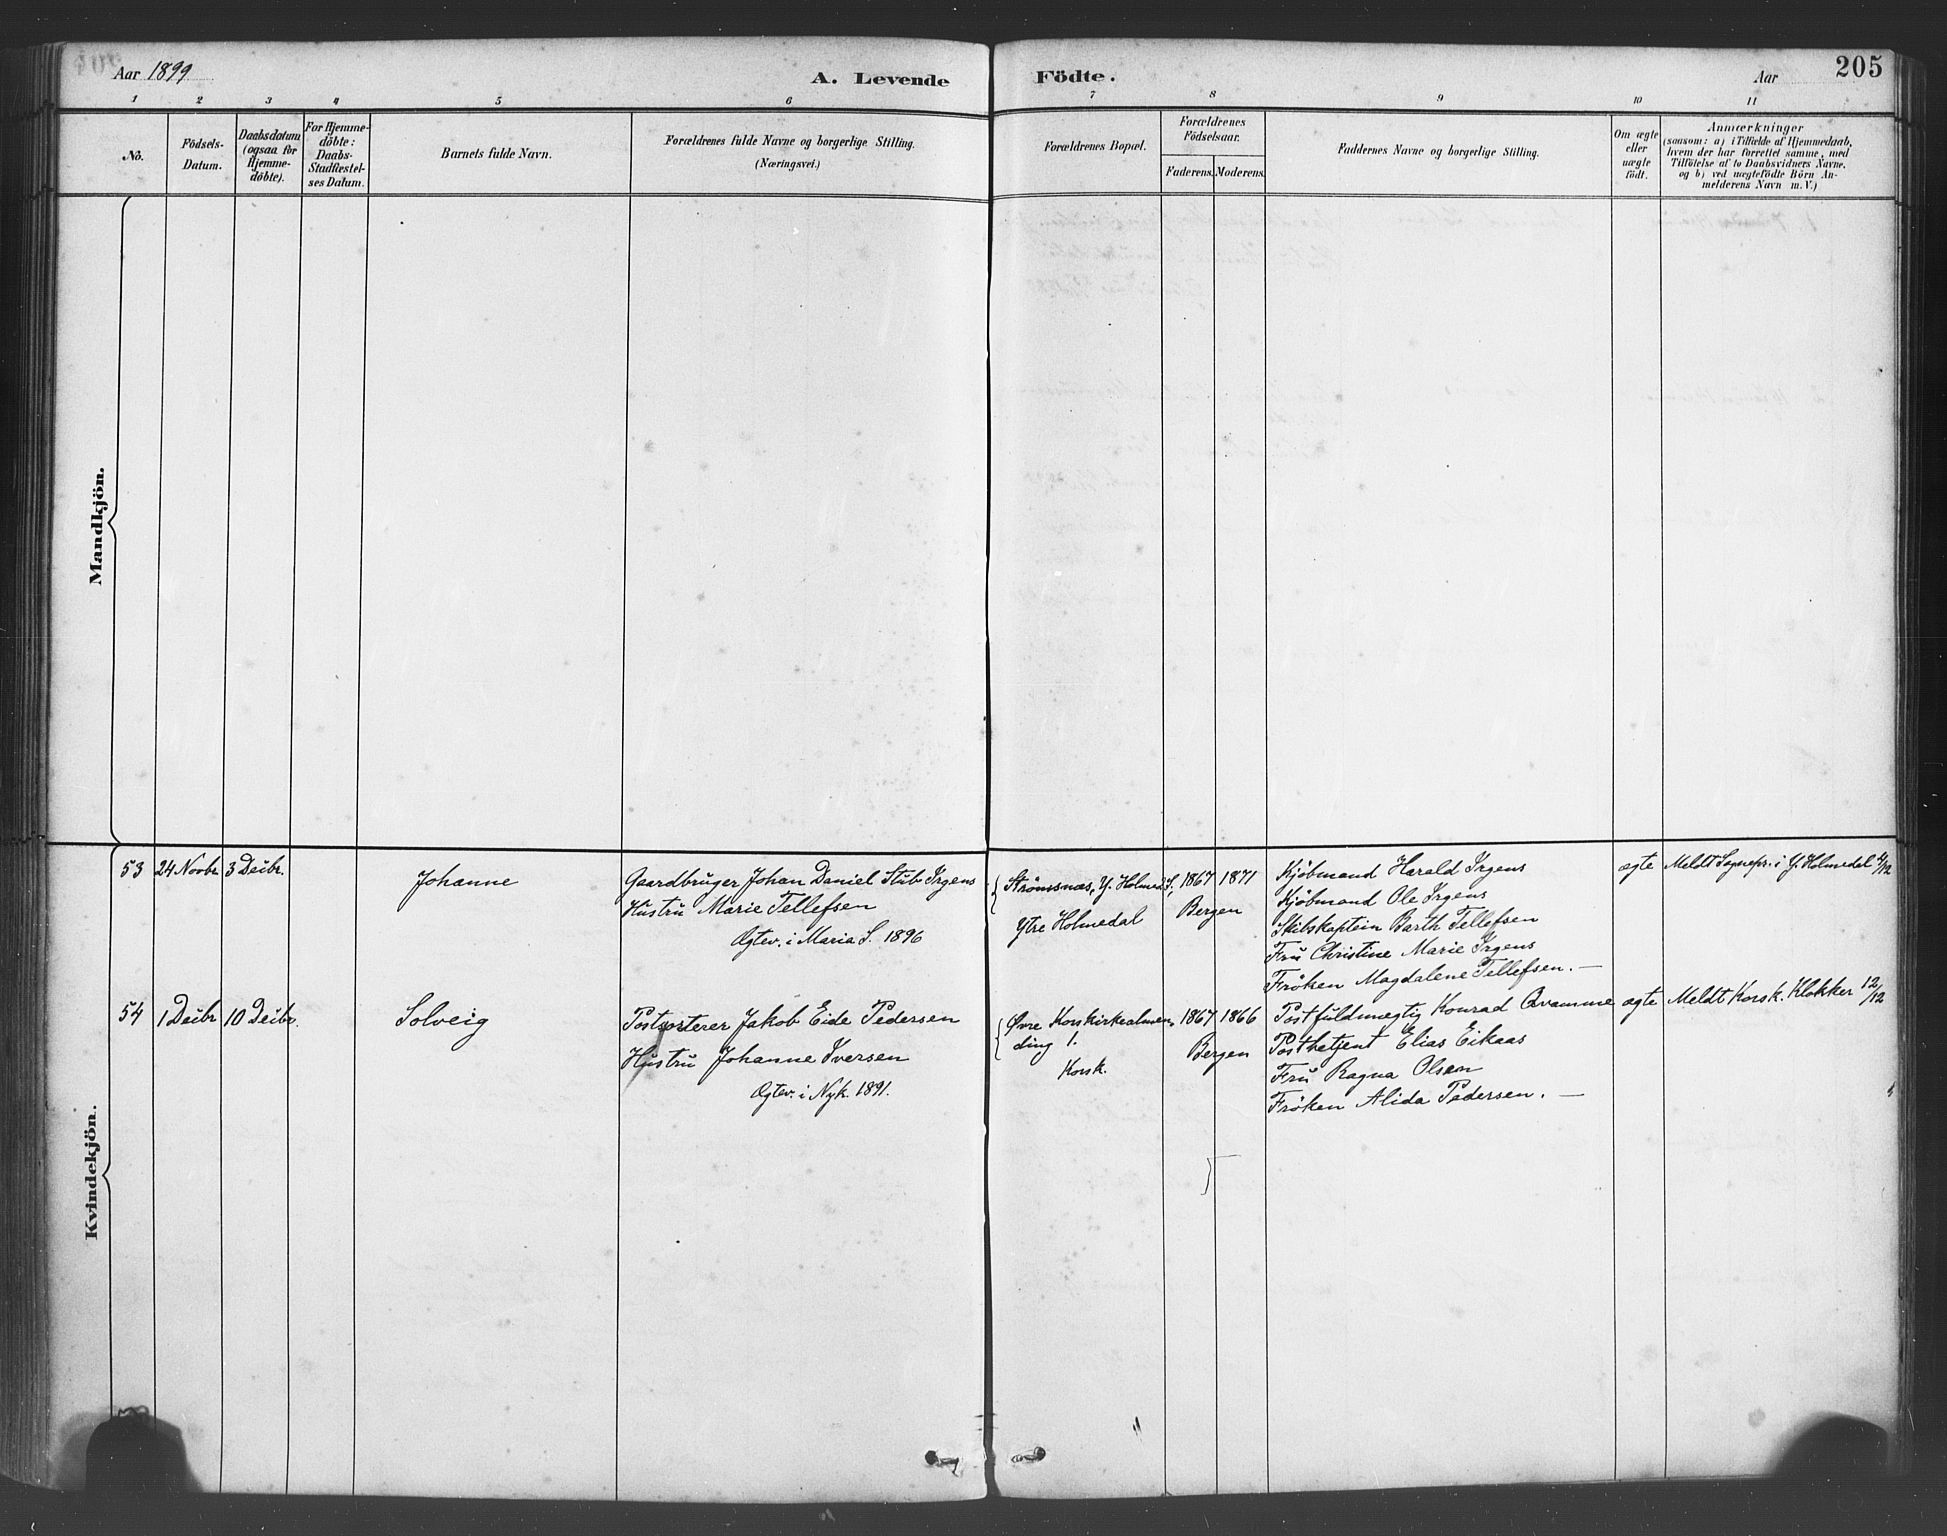 Aar 1899
A. Levende Födte.
Aar
205
1 2 3 4 5 6 7 8 9 10 11
No.
Födsels-
Datum.
Daabsdatum
(ogsaa for
Hjemme-
döbte).
For Hjemme-
döbte:
Daabs-
Stadfæstel-
ses Datum.
Barnets fulde Navn.
Forældrenes fulde Navne og borgerlige Stilling.
(Næringsvei.)
Forældrenes Bopæl.
Forældrenes
Födselsaar.
Faderens. Moderens.
Faddernes Navne og borgerlige Stilling.
Om ægte
eller
uægte
födt.
Anmærkninger
(saasom: a) i Tilfælde af Hjemmedaab,
hvem der har forrettet samme, med
Tilföielse af to Daabsvidners Navne.
og b) ved uægtefödte Börn An-
melderens Navn m. V.)
Mandkjön.
Kvindekjön.
53 24 Novbr. 3 Decbr.
Johanne
Gaardbruger Johan Daniel Stub Irgens
Hustru Marie Tellefsen
Ægtev. i Maria S. 1896
Strömsnæs, Y. Holmed. S.
Ytre Holmedal
1867 1871
Bergen
Kjöbmand Harald Irgens
Kjöbmand Ole Irgens
Skibskaptein Barth Tellefsen
Fru Christine Marie Irgens
Fröken Magdalene Tellefsen. —
ægte
Meldt Sognepr. i Y. Holmedal 4/12
54 1 Decbr. 10 Decbr.
Solveig
Postsorterer Jakob Eide Pedersen
Hustru Johanne Iversen
Ægtev. i Nyk. 1891.
Øvre Korskirkealmen-
ding 1.
Korsk.
1867 1866
Bergen
Postfuldmægtig Konrad Qvamme
Postbetjent Elias Eikaas
Fru Ragna Olsen
Fröken Alida Pedersen. —
ægte
Meldt Korsk. Klokker 12/12